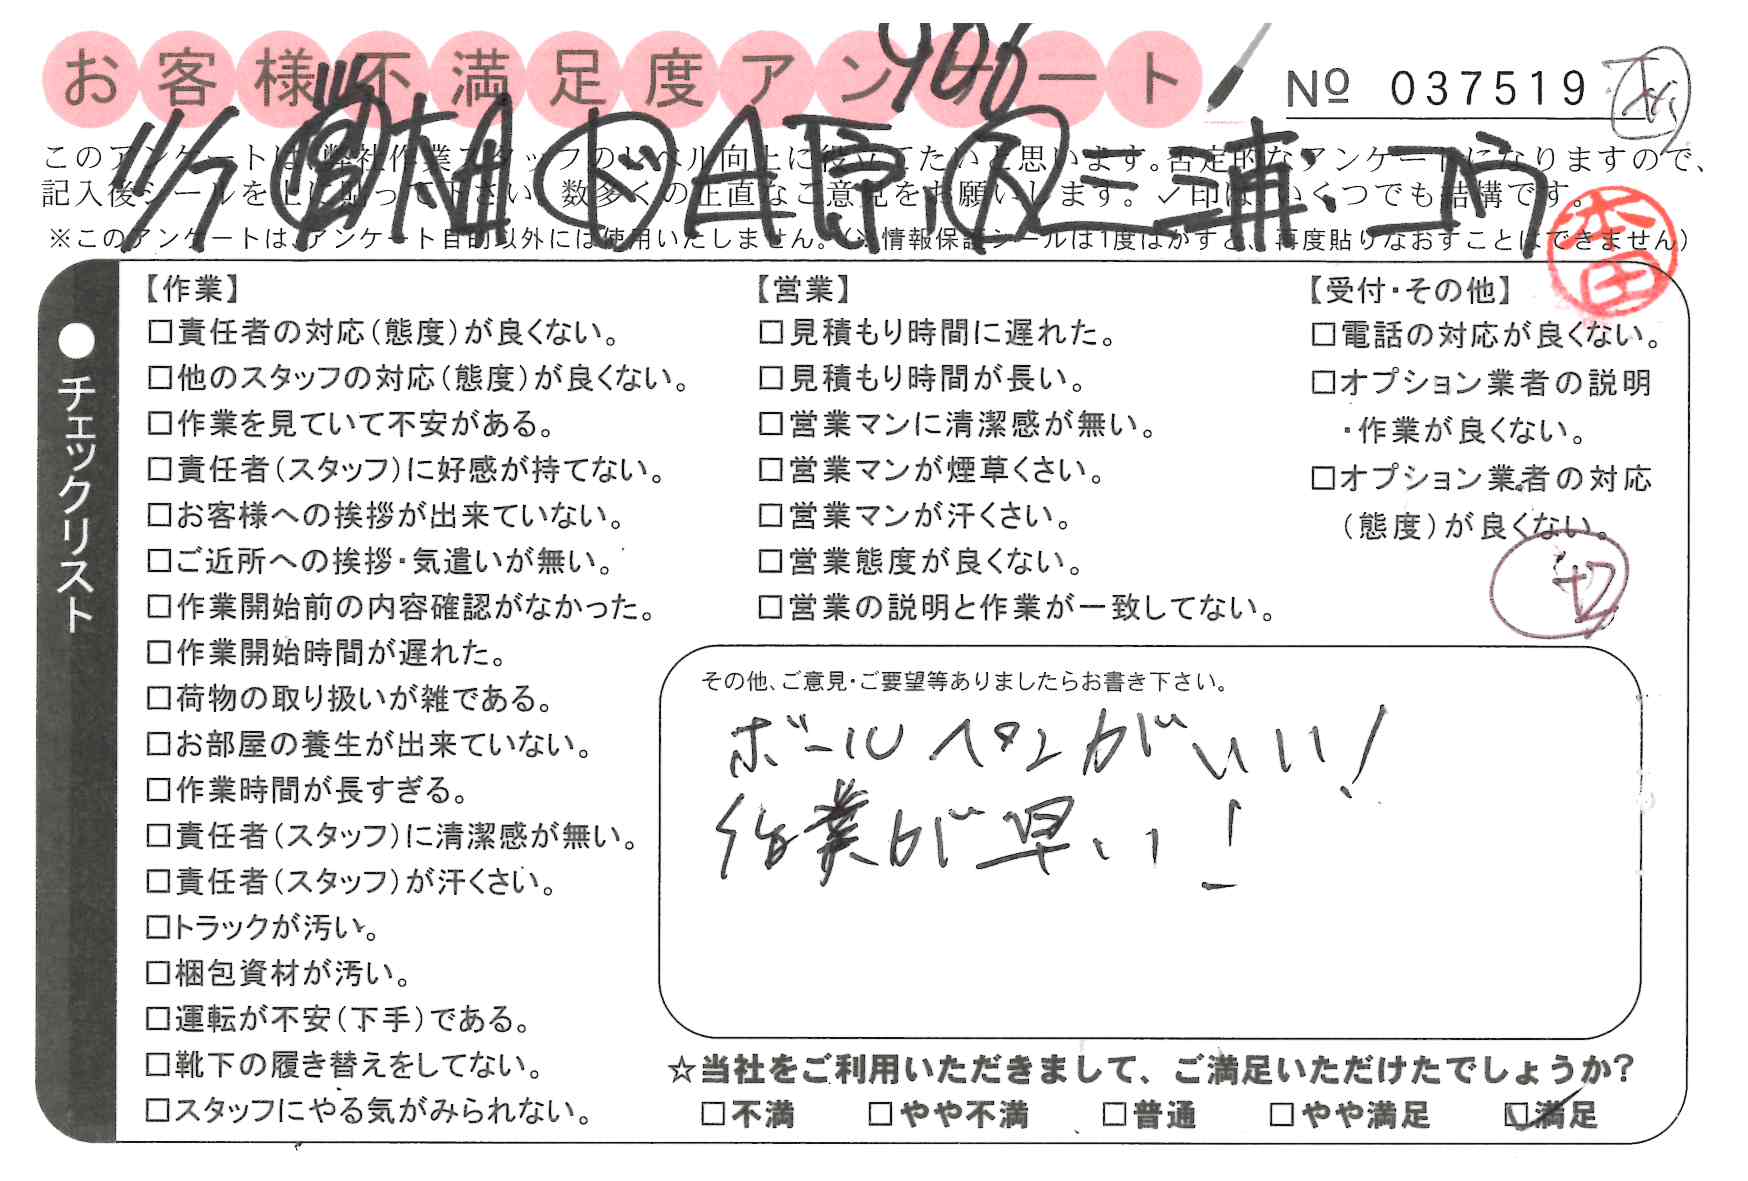 お客様不満足度アンケート
№ 037519
このアンケートは、弊社作業スタッフのレベル向上に役立てたいと思います。否定的なアンケートになりますので、
記入後シールを上に貼って下さい。数多くの正直なご意見をお願いします。✓印は、いくつでも結構です。
※このアンケートは、アンケート目的以外には使用いたしません。(※情報保護シールは1度はがすと、再度貼りなおすことはできません)
本田
チェックリスト
【作業】
□責任者の対応(態度)が良くない。
□他のスタッフの対応(態度)が良くない。
□作業を見ていて不安がある。
□責任者(スタッフ)に好感が持てない。
□お客様への挨拶が出来ていない。
□ご近所への挨拶・気遣いが無い。
□作業開始前の内容確認がなかった。
□作業開始時間が遅れた。
□荷物の取り扱いが雑である。
□お部屋の養生が出来ていない。
□作業時間が長すぎる。
□責任者(スタッフ)に清潔感が無い。
□責任者(スタッフ)が汗くさい。
□トラックが汚い。
□梱包資材が汚い。
□運転が不安(下手)である。
□靴下の履き替えをしてない。
□スタッフにやる気がみられない。
【営業】
□見積もり時間に遅れた。
□見積もり時間が長い。
□営業マンに清潔感が無い。
□営業マンが煙草くさい。
□営業マンが汗くさい。
□営業態度が良くない。
□営業の説明と作業が一致してない。
【受付・その他】
□電話の対応が良くない。
□オプション業者の説明
・作業が良くない。
□オプション業者の対応
(態度)が良くない。
その他、ご意見・ご要望等ありましたらお書き下さい。
ボールペンがいい!
作業が早い!
☆当社をご利用いただきまして、ご満足いただけたでしょうか?
□不満 □やや不満 □普通 □やや満足 ☑満足